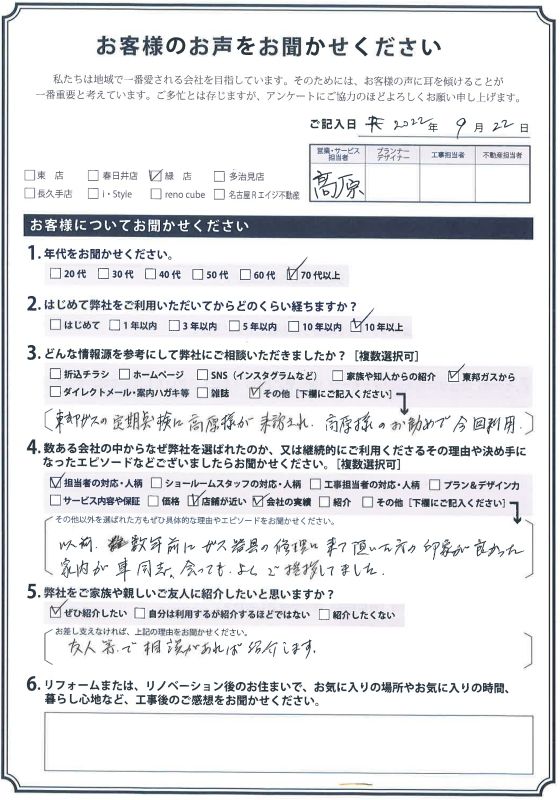 お客様のお声をお聞かせください
私たちは地域で一番愛される会社を目指しています。そのためには、お客様の声に耳を傾けることが
一番重要と考えています。ご多忙とは存じますが、アンケートにご協力のほどよろしくお願い申し上げます。
ご記入日 2022年 9月 22日
営業・サービス担当者 プランナーデザイナー 工事担当者 不動産担当者
高原
□東 店 □春日井店 ☑緑 店 □多治見店
□長久手店 □i・Style □reno cube □名古屋Rエイジ不動産
お客様についてお聞かせください
1.年代をお聞かせください。
□20代 □30代 □40代 □50代 □60代 ☑70代以上
2.はじめて弊社をご利用いただいてからどのくらい経ちますか？
□はじめて □1年以内 □3年以内 □5年以内 □10年以内 ☑10年以上
3.どんな情報源を参考にして弊社にご相談いただきましたか？［複数選択可］
□折込チラシ □ホームページ □SNS（インスタグラムなど） □家族や知人からの紹介 ☑東邦ガスから
□ダイレクトメール・案内ハガキ等 □雑誌 ☑その他［下欄にご記入ください］
東邦ガスの定期点検に高原様が来訪され、高原様のお勧めで今回利用。
4.数ある会社の中からなぜ弊社を選ばれたのか、又は継続的にご利用くださるその理由や決め手に
なったエピソードなどございましたらお聞かせください。［複数選択可］
☑担当者の対応・人柄 □ショールームスタッフの対応・人柄 □工事担当者の対応・人柄 □プラン＆デザイン力
□サービス内容や保証 □価格 ☑店舗が近い ☑会社の実績 □紹介 □その他［下欄にご記入ください］
その他以外を選ばれた方もぜひ具体的な理由やエピソードをお聞かせください。
以前、数年前にガス器具の修理に来て頂いた方の印象が良かった
家内が車同志。会っても、よくご挨拶してました。
5.弊社をご家族や親しいご友人に紹介したいと思いますか？
☑ぜひ紹介したい □自分は利用するが紹介するほどではない □紹介したくない
お差し支えなければ、上記の理由をお聞かせください。
友人等で相談があれば紹介します。
6.リフォームまたは、リノベーション後のお住まいで、お気に入りの場所やお気に入りの時間、
暮らし心地など、工事後のご感想をお聞かせください。